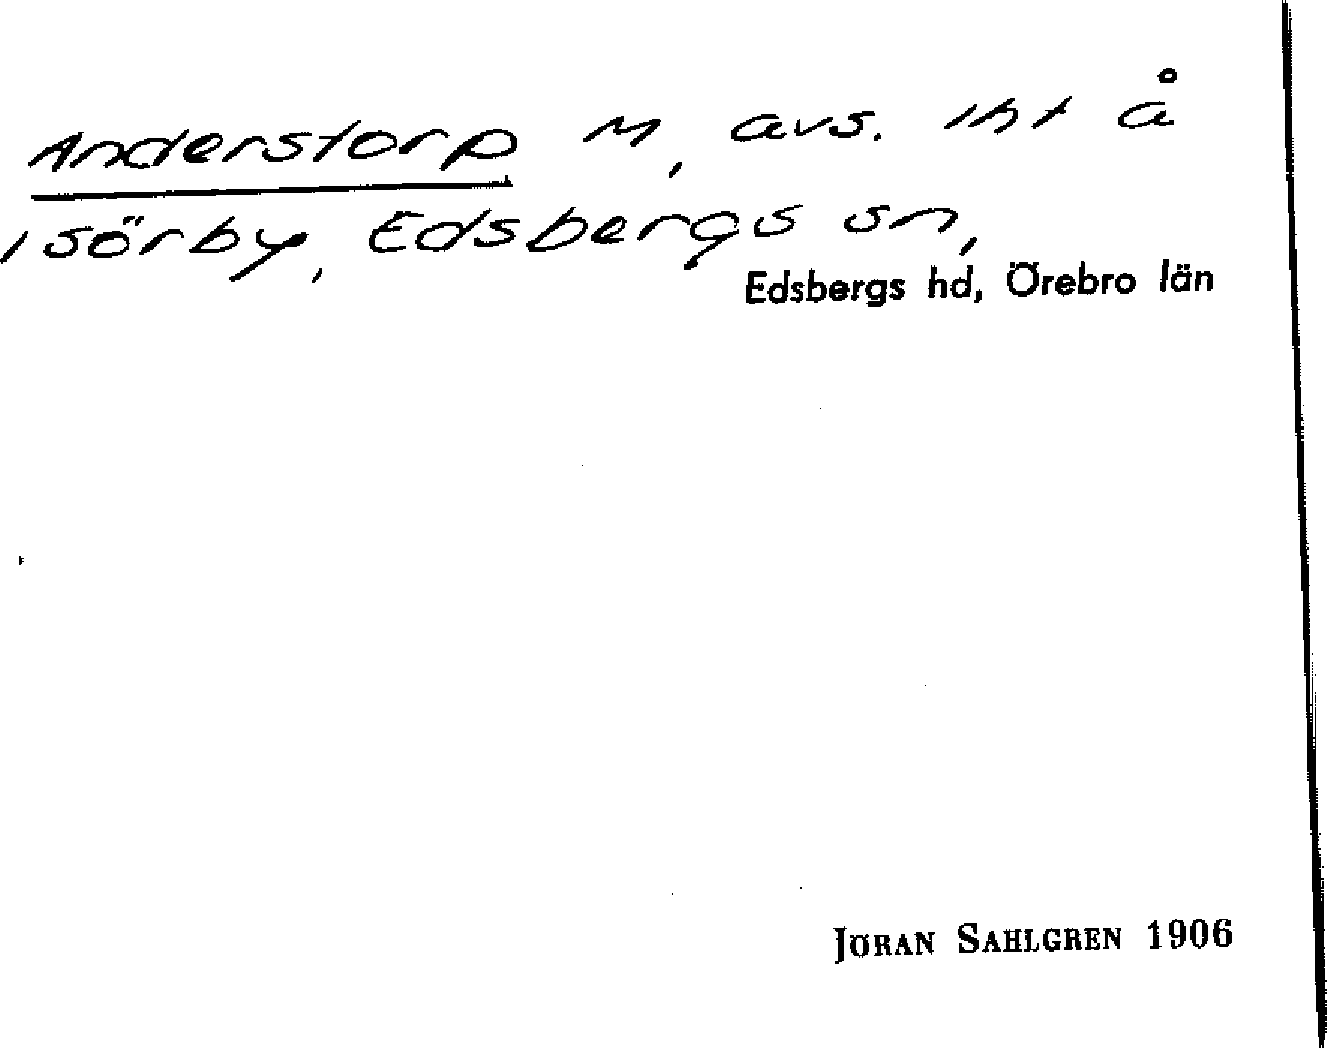 Anderstorp M, avs. lht å
, Sörby, Edsbergs sn,
Edsbergs hd, Örebro län
JÖRAN SAHLGREN 1906